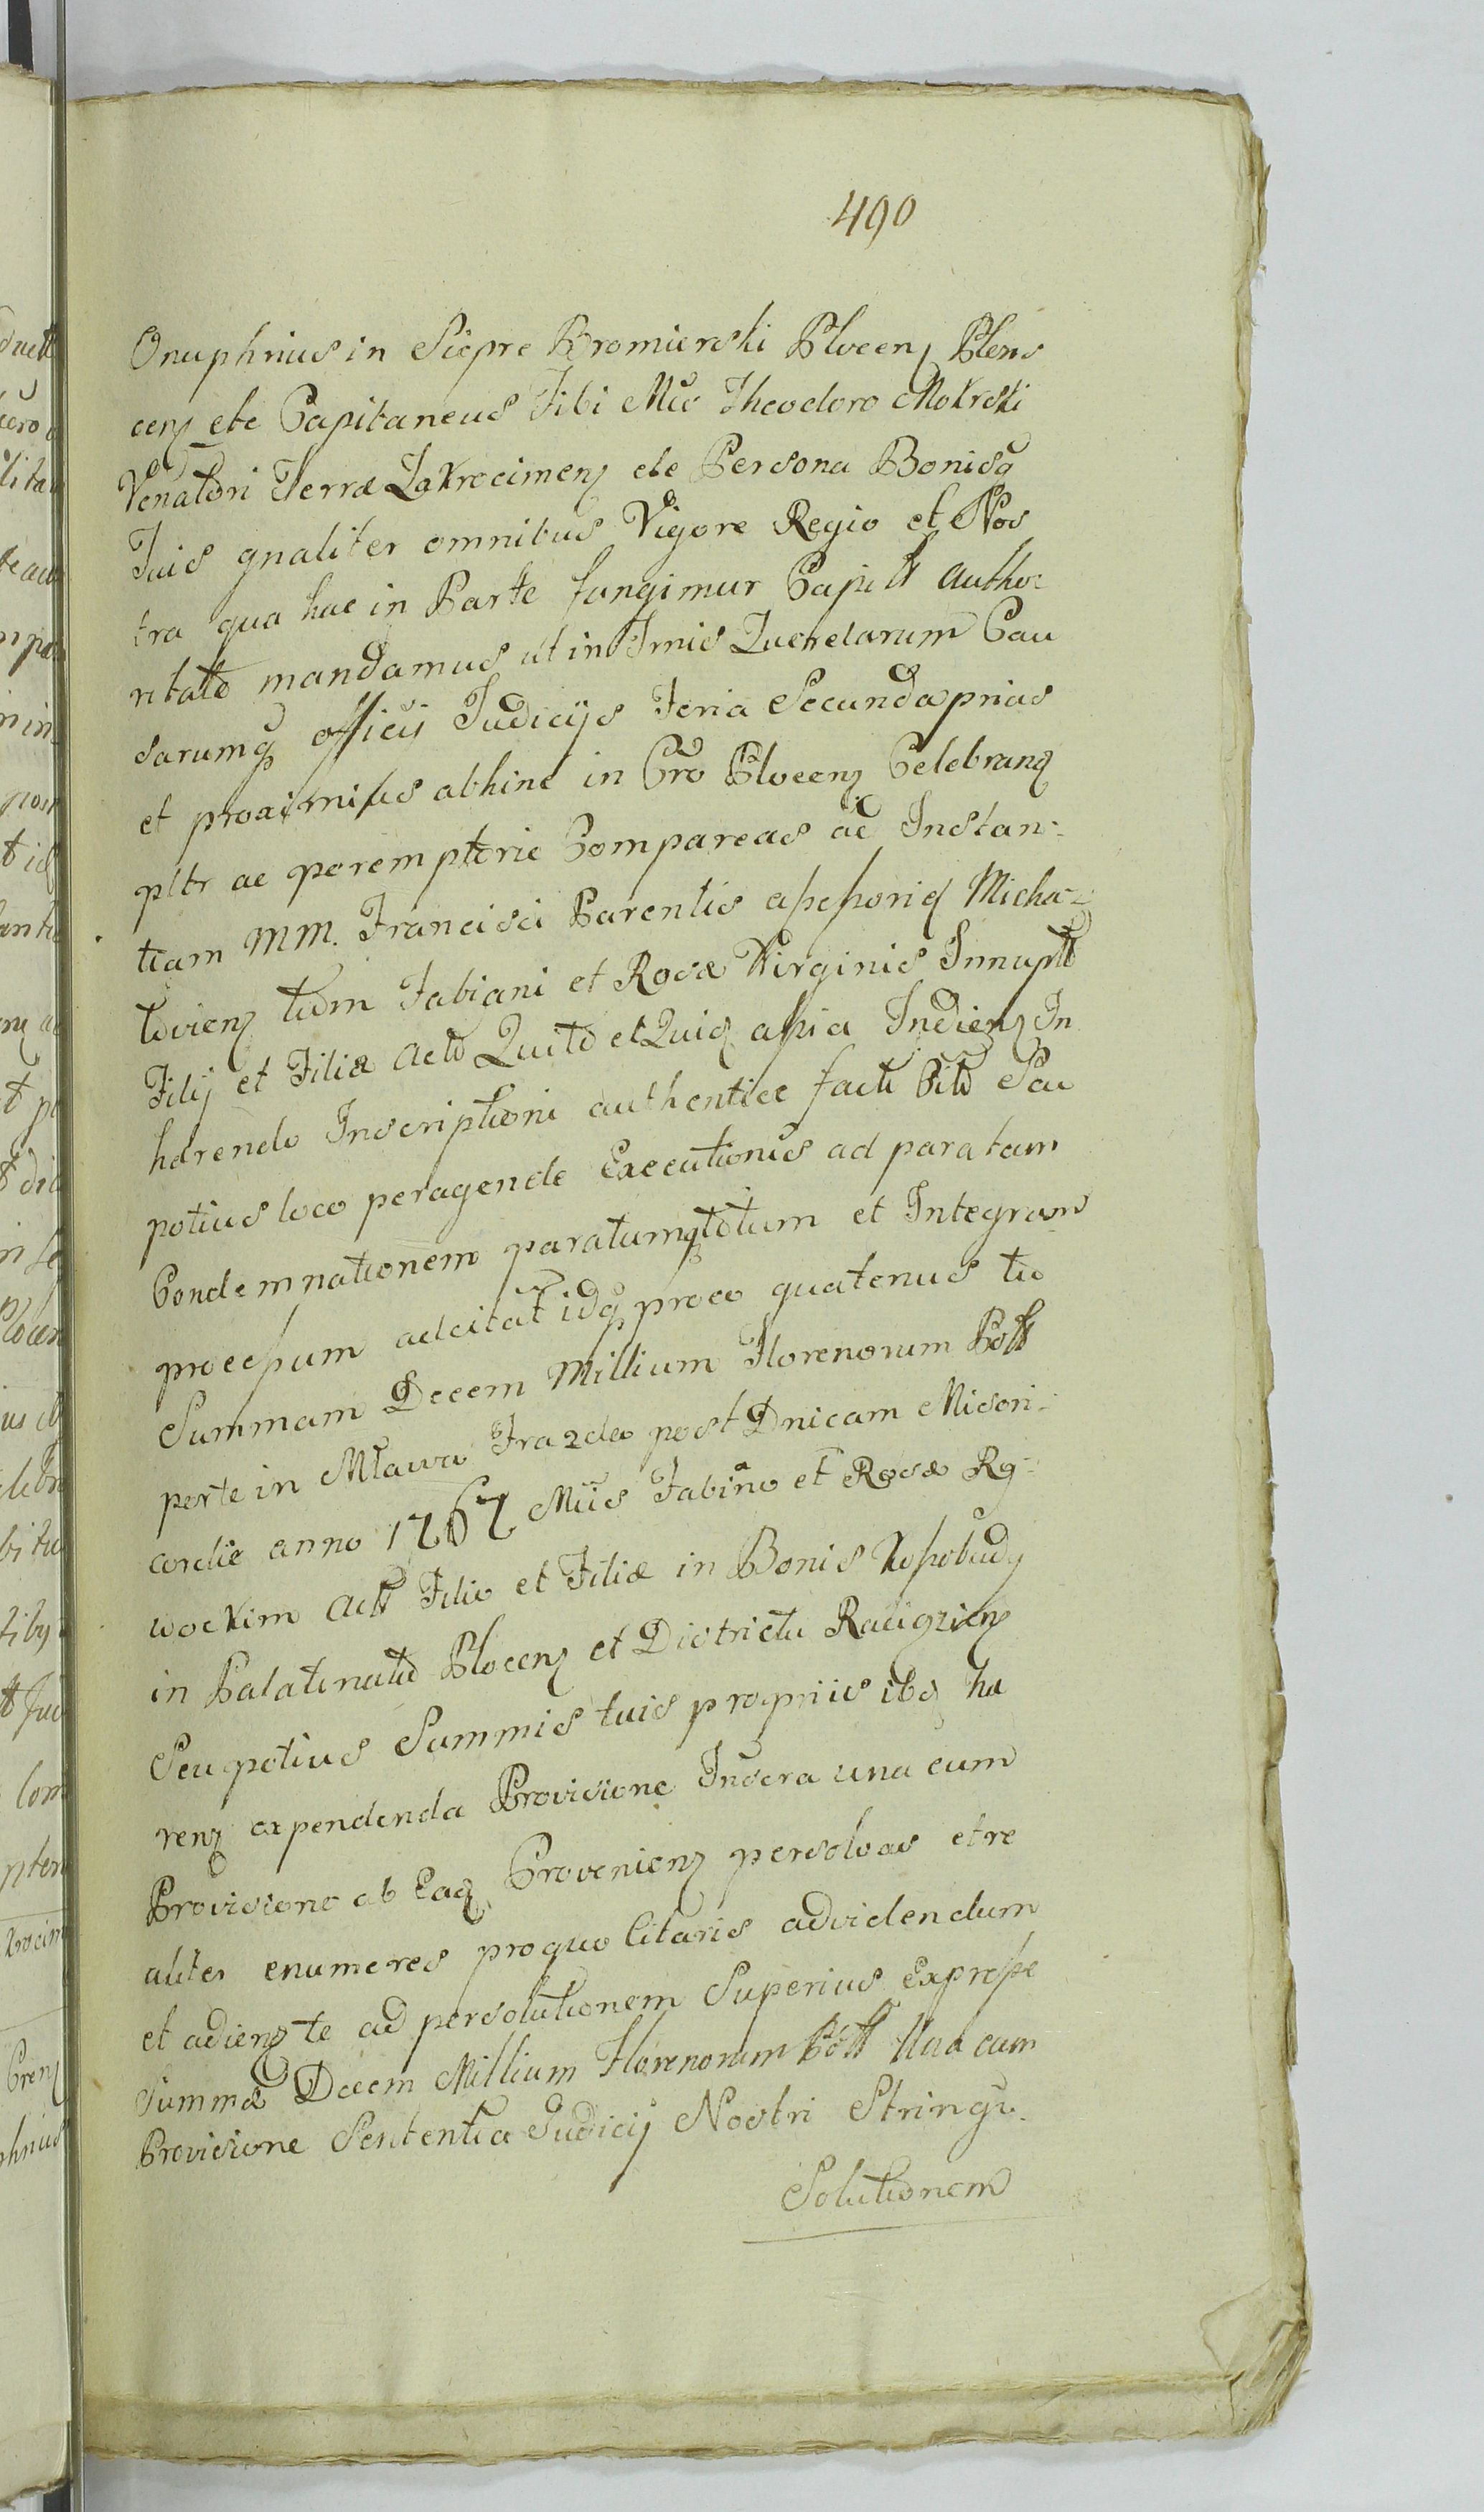 490
Onuphrius in Siepre Bromierski Plocenʒ Plons
cenʒ etc Capitaneus Tibi Mco Theodoro Mokrski
Venatori Terræ Zakrocimenʒ de Persona Bonisq
Tuis gnaliter omnibus Vigore Regio et Nos
tra qua hac in Parte fungimur Capitt autho-
ritate mandamus ut in Trnis Querelarum Cau
sarumq officij Judicijs Feria Secunda prius
et proximius abhinc in Cro Plocenʒ Celebranʒ
pltr ac peremptorie Compareas ad Instan-
tiam MM. Francisci Parentis assessoriq Micha-
lovienʒ tum Fabiani et Rosæ Virginis Innuptt
Filij et Filiæ Acto Quito et Quiq assia Indienʒ In
hærendo Inscriptioni authentice facti Cito Seu
potius loco peragende Executionis ad paratam
Condemnationem paratumq totum et Integrum
processum adcitat idq proeo quatenus tu
Summam Decem Millium Florenorum Poltt
per te in Mława Fra 2da post Dnicam Miseri-
cordiæ anno 1767 Miis Fabiano et Rosæ Rq-
wockim Actt Filio et Filiæ in Bonis
in Palatinatu Plocenʒ et Districtu Raciązienʒ
Seu potius Summis tuis propriis ibq hæ
renʒ expendenda Provisione Insera una cum
Provisione ab Eaq Provenienʒ persolvas et re
aliter enumeres proquo litaris advidendum
et adienʒ te ad persolutionem Superius Expressæ
Summæ Decem Millium Florenorum Poltt Una cum
Provisione Sententia Judicij Nostri Stringi
Solutionem